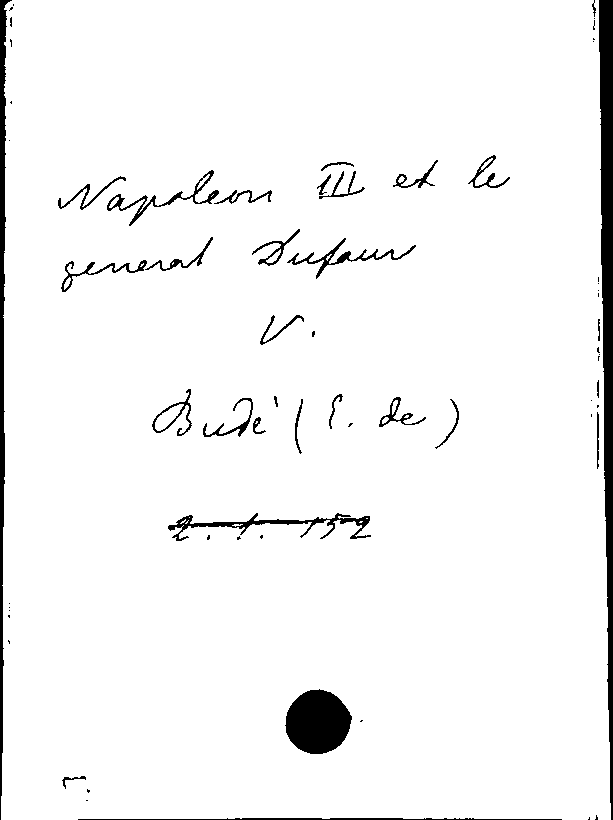 Napoleon III et le
general Dufour
V.
Budé (E. de)
2. 1. 152